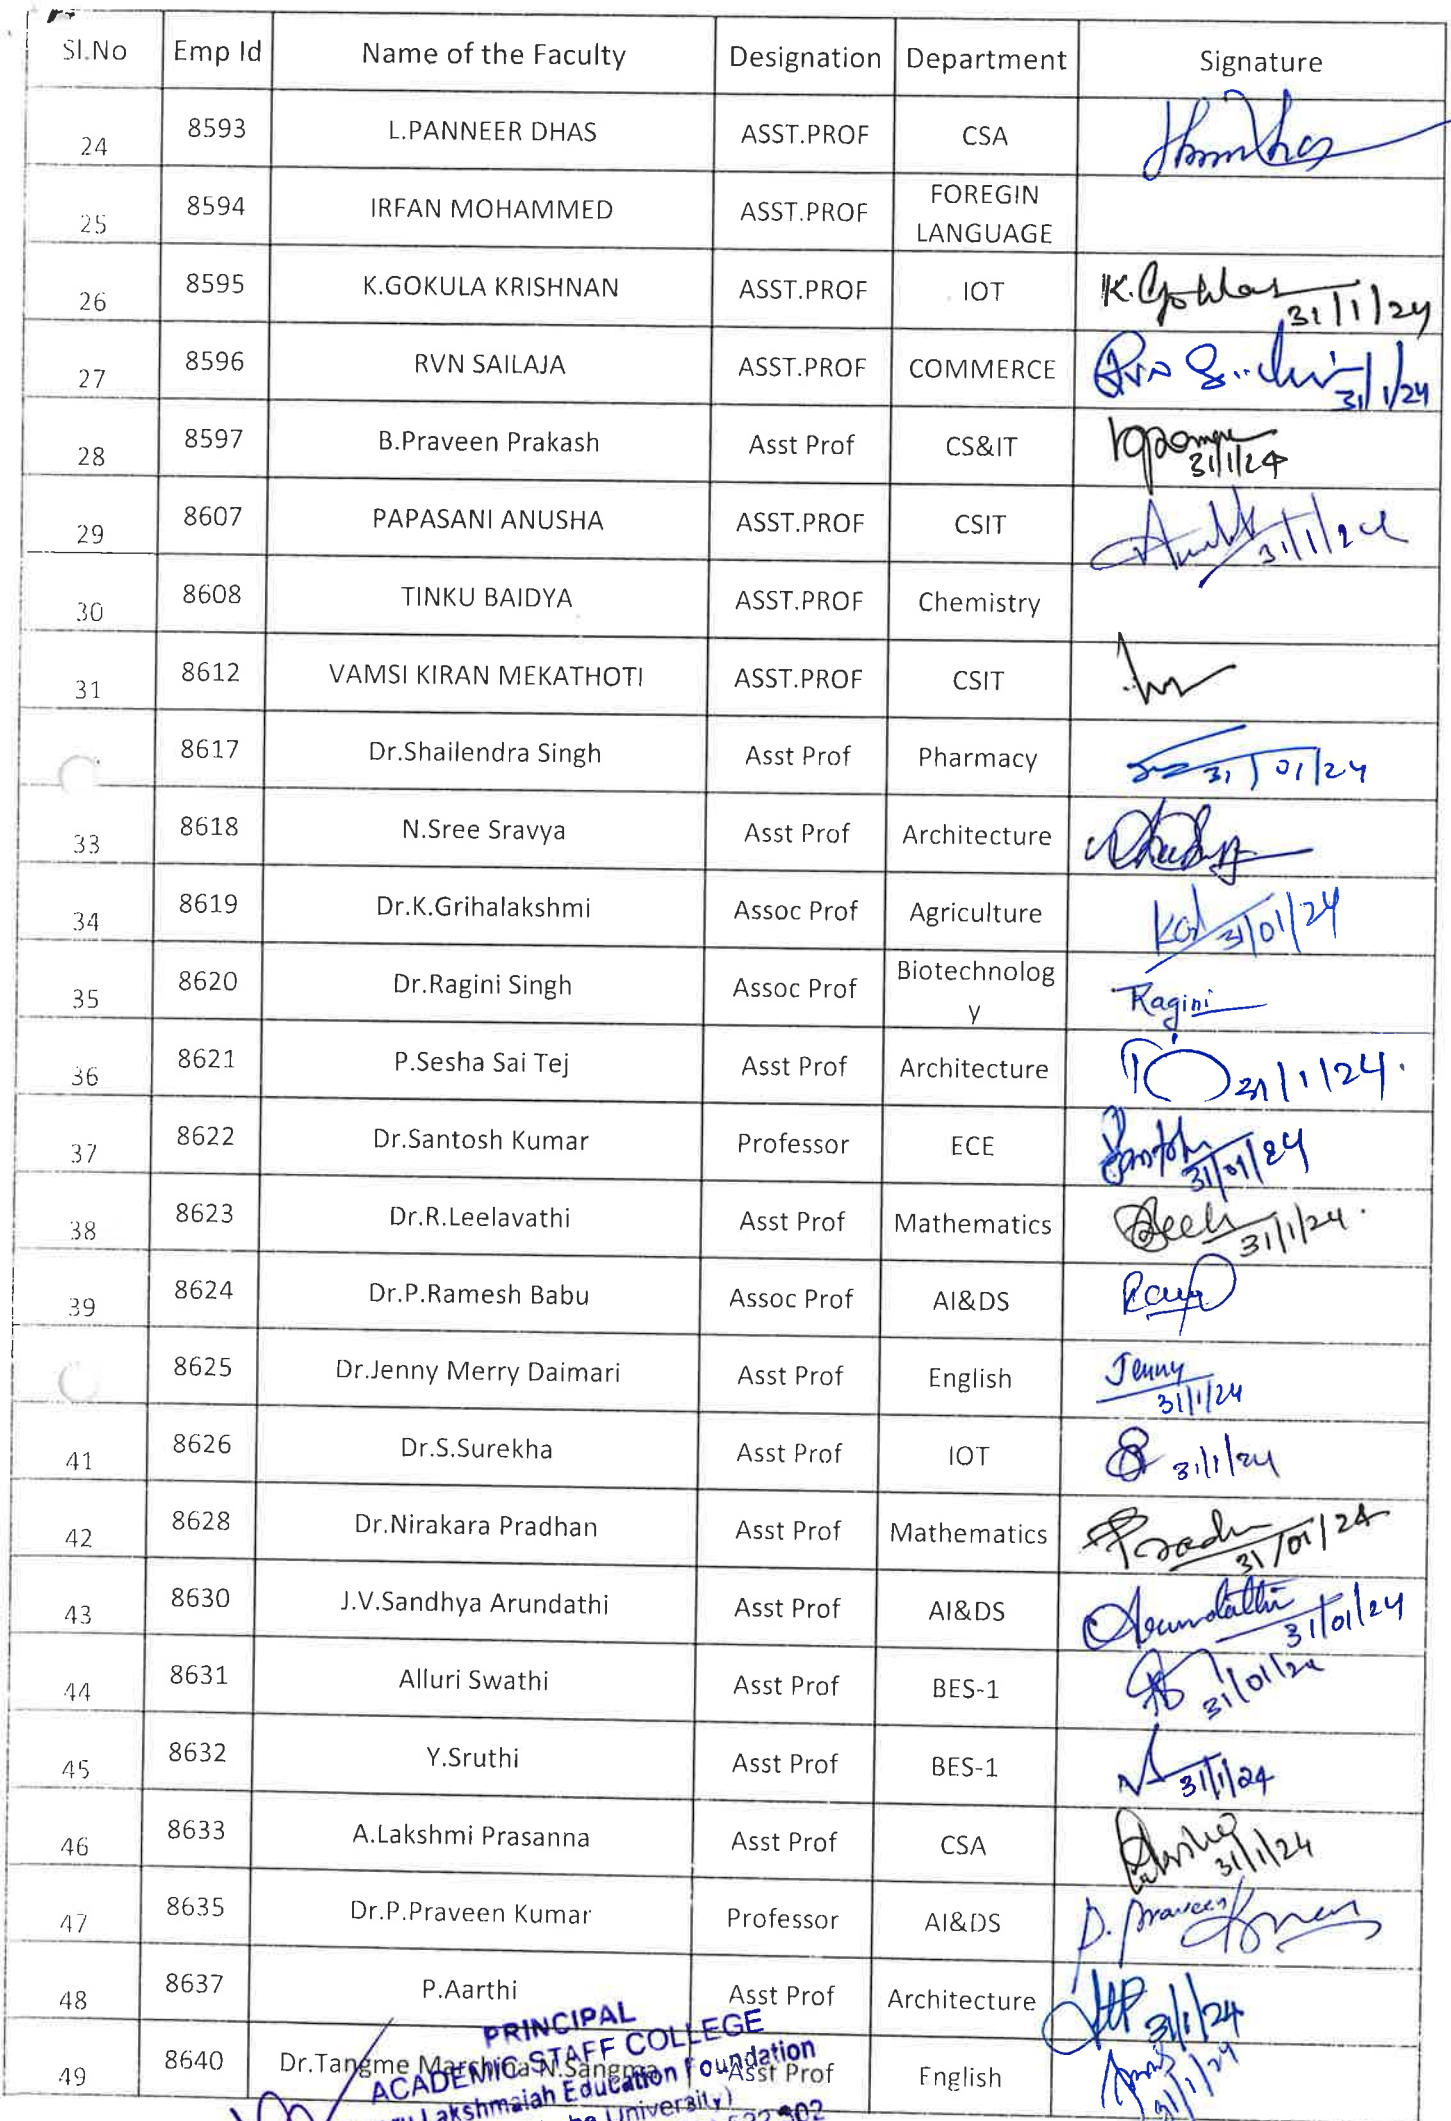 Sl.No Emp Id Name of the Faculty Designation Department Signature
24 8593 L.PANNEER DHAS ASST.PROF CSA
25 8594 IRFAN MOHAMMED ASST.PROF FOREGIN
LANGUAGE
26 8595 K.GOKULA KRISHNAN ASST.PROF IOT 31/1/24
27 8596 RVN SAILAJA ASST.PROF COMMERCE RVN 31/1/24
28 8597 B.Praveen Prakash Asst Prof CS&IT 31/1/24
29 8607 PAPASANI ANUSHA ASST.PROF CSIT 31/1/24
30 8608 TINKU BAIDYA ASST.PROF Chemistry
31 8612 VAMSI KIRAN MEKATHOTI ASST.PROF CSIT
8617 Dr.Shailendra Singh Asst Prof Pharmacy 31/01/24
33 8618 N.Sree Sravya Asst Prof Architecture
34 8619 Dr.K.Grihalakshmi Assoc Prof Agriculture 31/01/24
35 8620 Dr.Ragini Singh Assoc Prof Biotechnolog
y Ragini
36 8621 P.Sesha Sai Tej Asst Prof Architecture 31/1/24.
37 8622 Dr.Santosh Kumar Professor ECE 31/01/24
38 8623 Dr.R.Leelavathi Asst Prof Mathematics 31/1/24.
39 8624 Dr.P.Ramesh Babu Assoc Prof AI&DS
8625 Dr.Jenny Merry Daimari Asst Prof English Jenny
31/1/24
41 8626 Dr.S.Surekha Asst Prof IOT 31/1/24
42 8628 Dr.Nirakara Pradhan Asst Prof Mathematics 31/01/24
43 8630 J.V.Sandhya Arundathi Asst Prof AI&DS Arundathi 31/01/24
44 8631 Alluri Swathi Asst Prof BES-1 31/01/24
45 8632 Y.Sruthi Asst Prof BES-1 31/1/24
46 8633 A.Lakshmi Prasanna Asst Prof CSA 31/1/24
47 8635 Dr.P.Praveen Kumar Professor AI&DS P. Praveen Kumar
48 8637 P.Aarthi Asst Prof Architecture 31/1/24
49 8640 Dr.Tangme Marshica N.Sangma Asst Prof English 31/1/24
PRINCIPAL
ACADEMIC STAFF COLLEGE
Lakshmaiah Education Foundation
University)